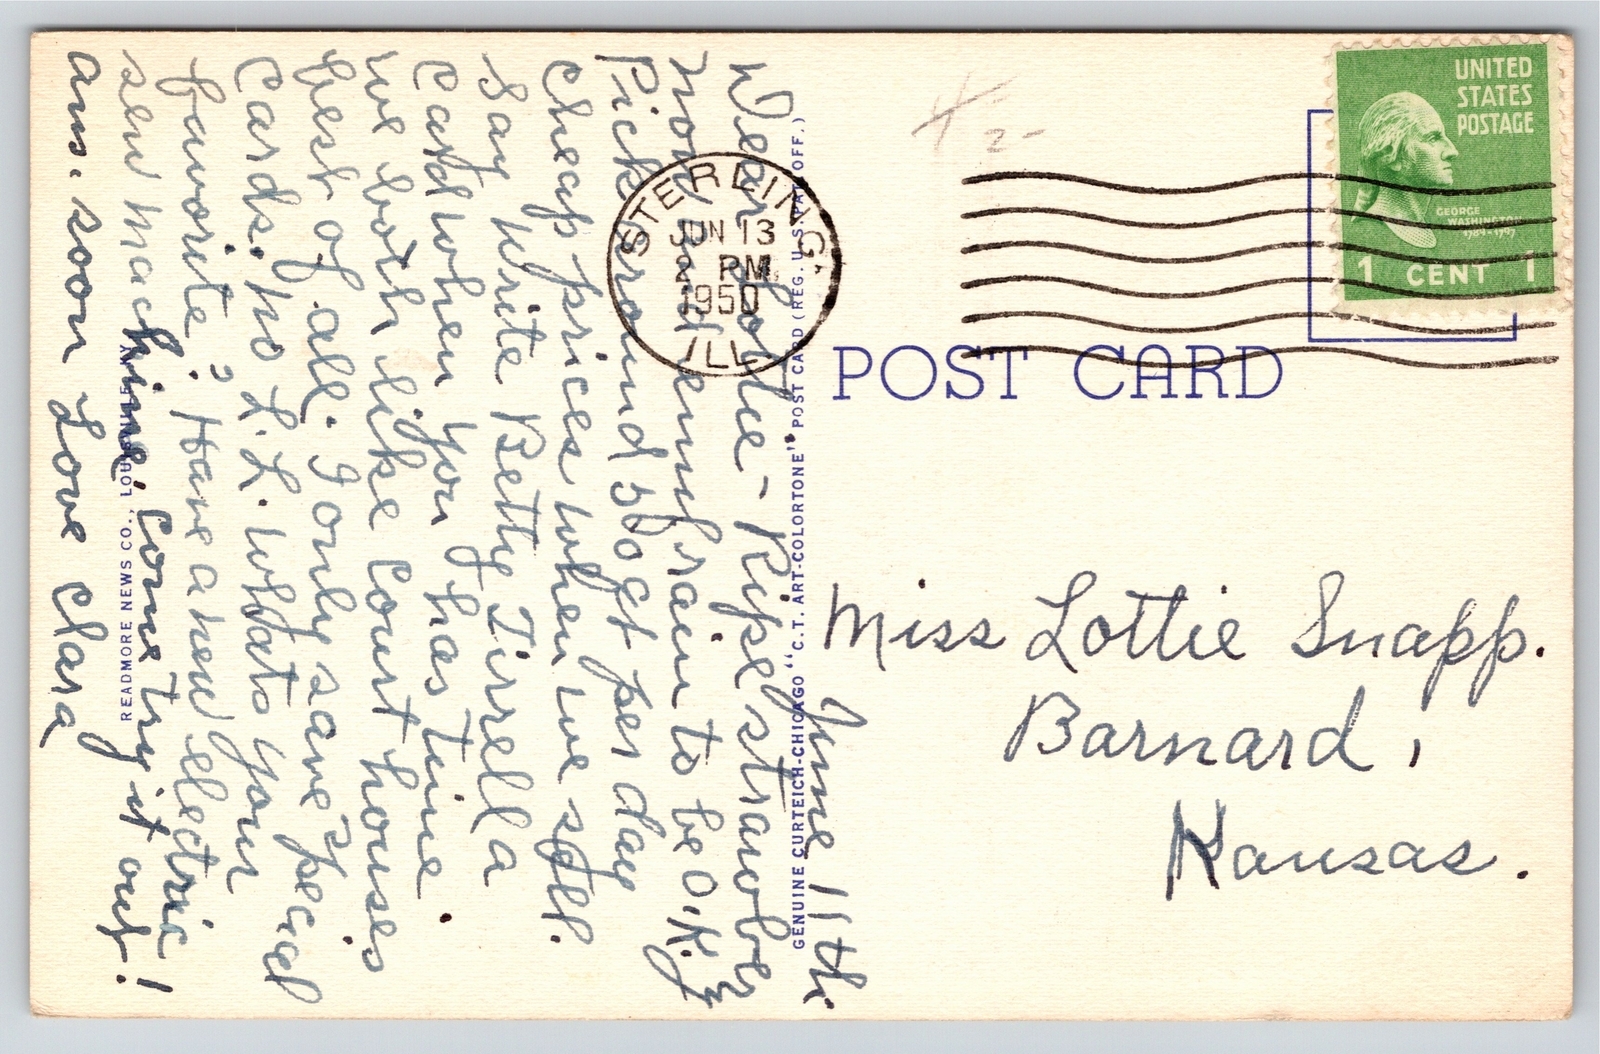 UNITED
STATES
POSTAGE
GEORGE
WASHINGTON
1789-1797
1 CENT 1
STERLING.
JUN 13
2 PM
1950
ILL.
POST CARD
June 11th
Dear Lottie - Ripe strawber
now and enuf rain to be O.K. I
Pick around 50 qt per day
cheap prices when we sell.
Say write Betty Tirrell a
card when you has time.
we both like Court houses
best of all. I only save special
Cards. no L.L. whats your
favorite? Have a new electric
sew machine. Come try it out!
am. soon Love Clara
Miss Lottie Snapp.
Barnard,
Kansas.
GENUINE CURTEICH-CHICAGO "C.T. ART-COLORTONE" POST CARD (REG. U.S. PAT. OFF.)
READMORE NEWS CO., LOUISVILLE, KY.